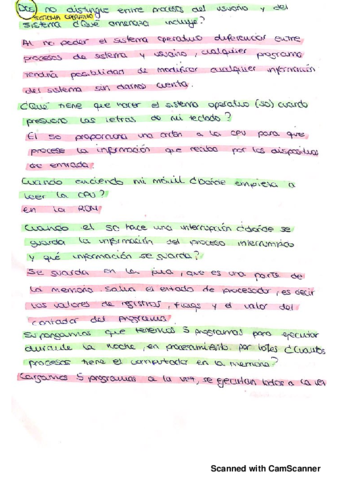 Dos no distingue entre procesos del usuario y del
SISTEMA OPERATIVO
sistema ¿Qué amenaza incluye?
Al no poder el sistema operativo diferenciar entre
procesos de sistema y usuario, cualquier programa
tendría posibilidad de modificar cualquier información
del sistema sin darnos cuenta.
¿Qué tiene que hacer el sistema operativo (so) cuando
presiono las letras de mi teclado?
El so proporciona una orden a la CPU para que
procese la información que recibe por los dispositivos
de entrada.
Cuando enciendo mi móvil ¿Dónde empieza a
leer la CPU?
En la ROM
Cuando el SO hace una interrupción ¿dónde se
guarda la información del proceso interrumpido
y qué información se guarda?
Se guarda en la pila, que es una parte de
la memoria. Salva el estado de procesador, es decir
los valores de registros, flags y el valor del
contador del programa.
Supongamos que tenemos 5 programas para ejecutar
durante la noche, en procesamiento por lotes ¿Cuántos
procesos tiene el computador en la memoria?
Cargamos 5 programas a la se ejecutan todos a la vez
Scanned with CamScanner